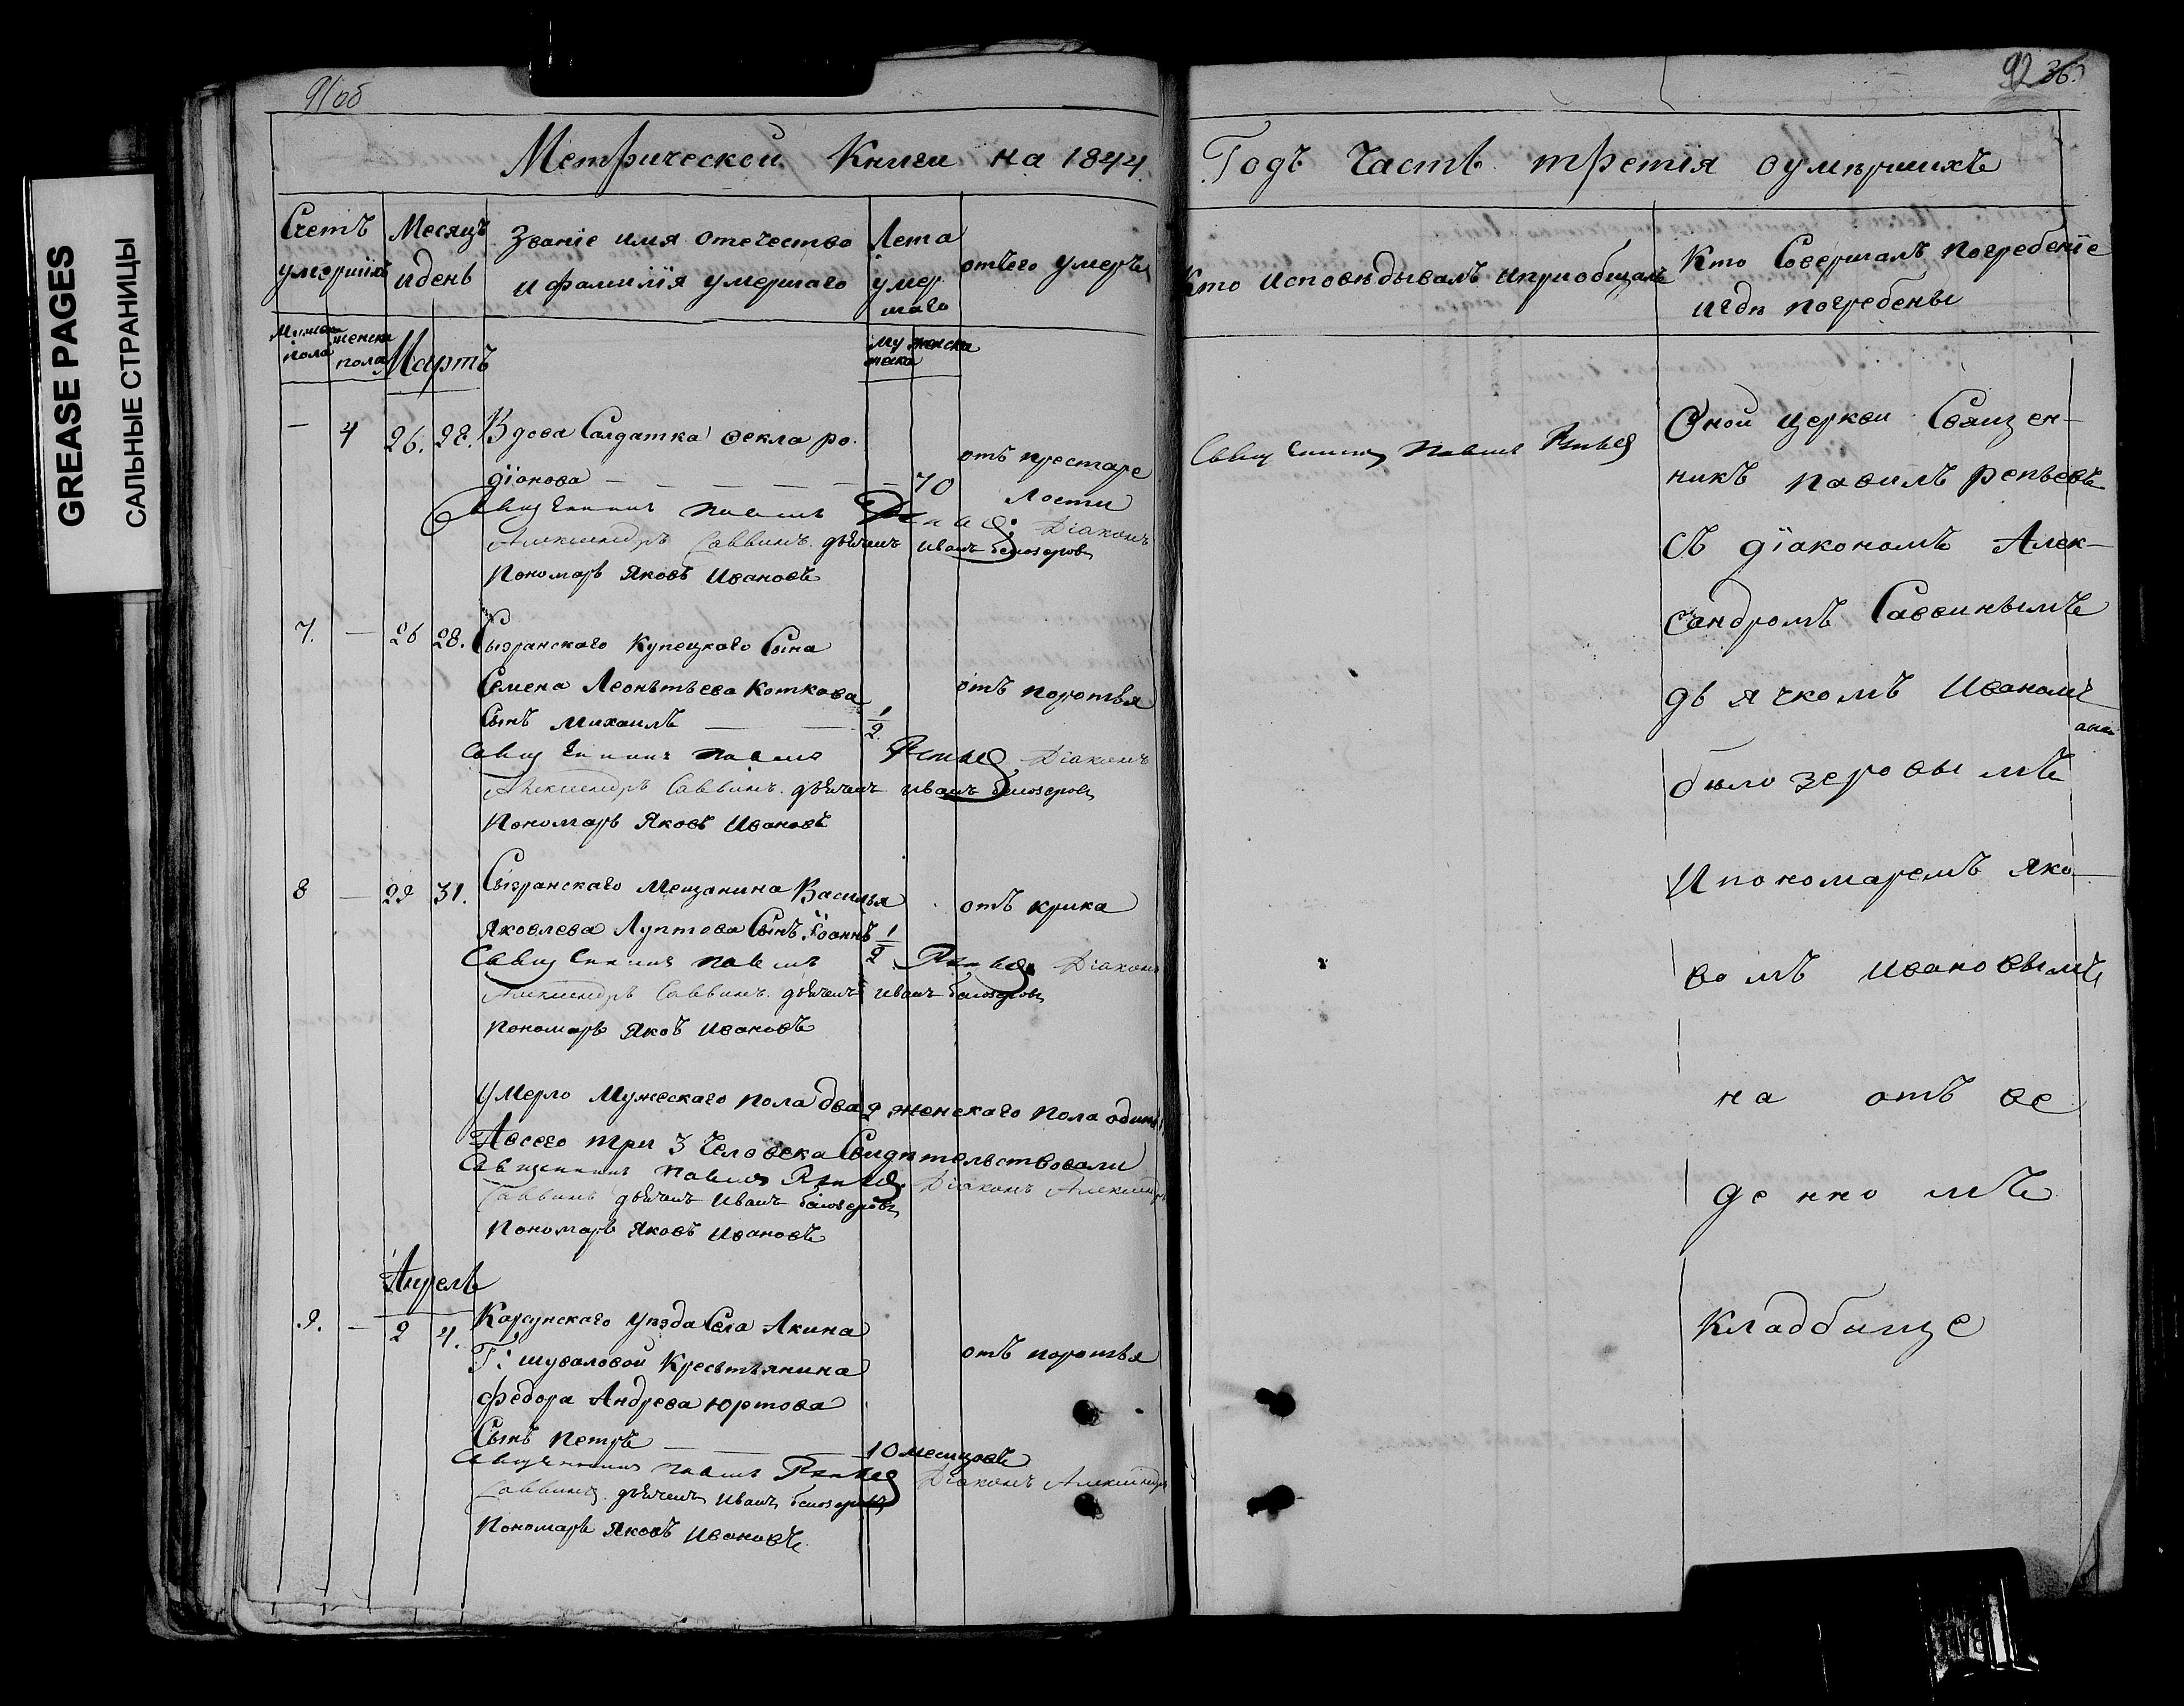 GREASE PAGES
САЛЬНЫЕ СТРАНИЦЫ
91об
Метрической Книги на 1844
Счетъ умершихъ
Месяцъ и день
Званіе имя отечество и фамилїя умершаго
Лета умершаго
отъ чего умеръ
пола
женска пола
Мартъ
мужеска
женска
— 4 26. 28. Вдова Салдатка Фекла ро
діонова — — — — — 70
отъ престаре
лости
Священникъ Павелъ Репьев Діаконъ
Александръ Саввинъ. дьячекъ иванъ белозеровъ
Пономарь Яковъ Ивановъ
7. — 26 28. Сызранскаго Купецкаго Сына
Семена Леонтьева Коткова
отъ поротья
Сынъ Михаилъ — — 1/2
Священникъ Павелъ Репьев Діаконъ
Александръ Саввинъ. дьячекъ иванъ белозеровъ
Пономарь Яковъ Ивановъ
8 — 29 31. Сызранскаго Мещанина Василья
отъ крика
Яковлева Луптова Сынъ Іоаннъ 1/2
Священникъ Павелъ Репьев Діаконъ
Александръ Саввинъ. дьячекъ иванъ белозеровъ
Пономарь Яковъ Ивановъ
умерло Мужескаго пола два 2 женскаго пола один 1
А всего три 3 Человека Свидѣтельствовали
Священникъ Павелъ Репьев Діаконъ Александръ
Саввинъ дьячекъ Иванъ белозеровъ
Пономарь Яковъ Ивановъ
Апрель
9. — 2 4. Карсунскаго уезда Села Акина
Г: шуваловой Крестьянина
отъ поротья
Федора Андреева юртова
Сынъ Петръ — — — 10 месицовъ
Священникъ Павелъ Репьев Діаконъ Александръ
Саввинъ дьячекъ Иванъ белозеровъ
Пономарь Яковъ Ивановъ
92 36.
Годъ Часть третія оумѣршихъ
Кто исповѣдывалъ и приобщалъ
Кто Совершалъ погребенїе
и гдѣ погребены
Священникъ Павелъ Репьев
Оной церкви Священ-
никъ павилъ репьевъ
Съ дїакономъ Алек-
сандромъ Саввинымъ
дьячкомъ Иваномъ
бѣлозеровымъ
И пономаремъ яко-
вомъ ивановымъ
на отъ ве
денномъ
Кладбище